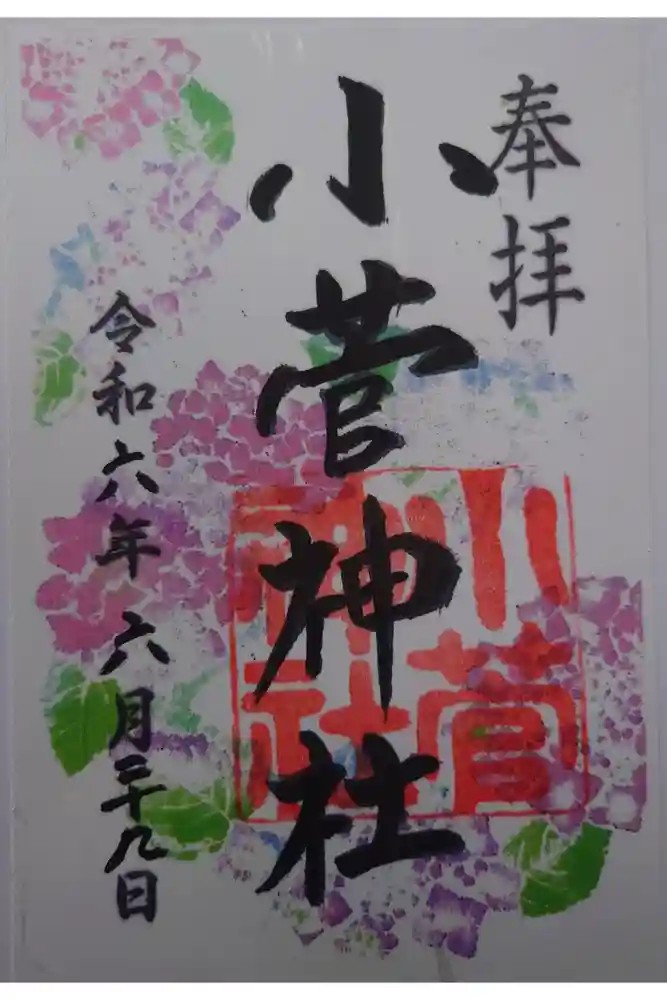 奉拝
小菅神社
小菅
神社
令和六年六月二十九日